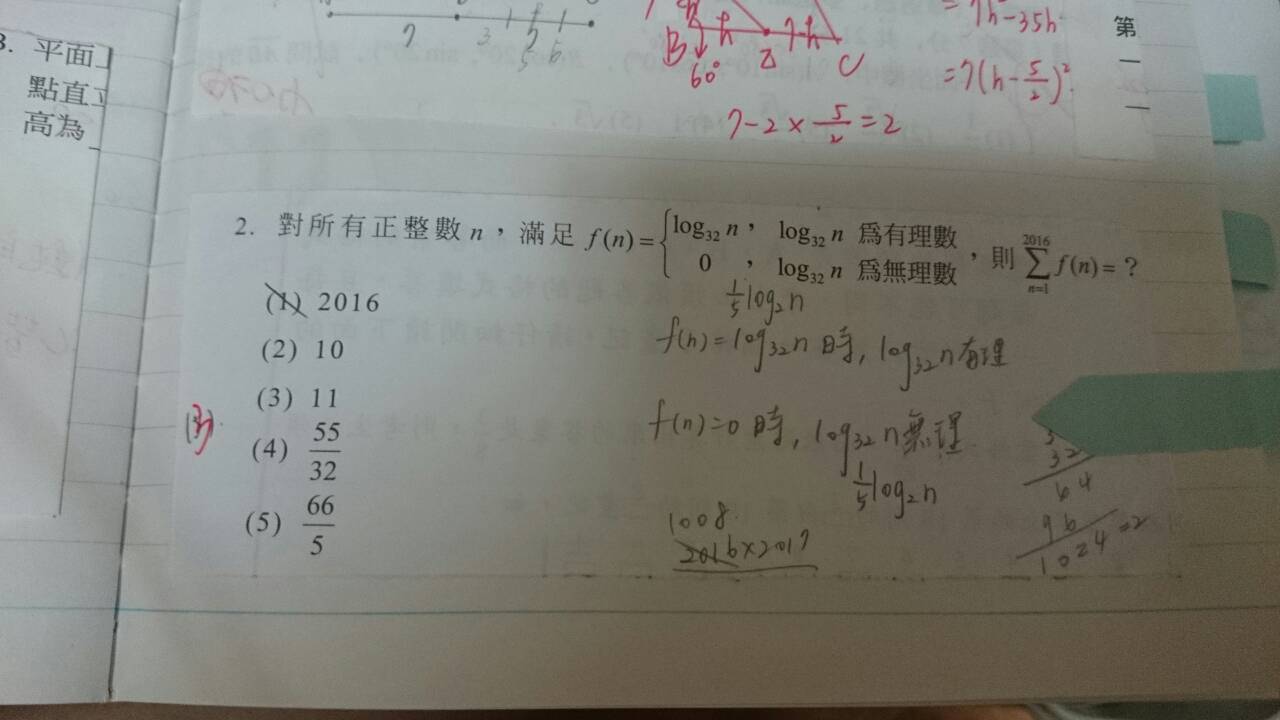 3. 平面
點直
高為
7
3
2
5
6
B
60°
2
C
7-2×5/2=2
=7h²-35h
=7(h-5/2)²
第
一
2. 對所有正整數n，滿足 f(n)={log₃₂ n， log₃₂ n 為有理數
0 ， log₃₂ n 為無理數，則 2016∑n=1 f(n)=？
(1) 2016
(2) 10
(3) 11
(4) 55/32
(5) 66/5
(3)
1/5 log₂n
f(n)=log₃₂n 時, log₃₂n有理
f(n)=0 時, log₃₂n無理
1/5 log₂n
1008
2016×2017
32
64
96
1024=2